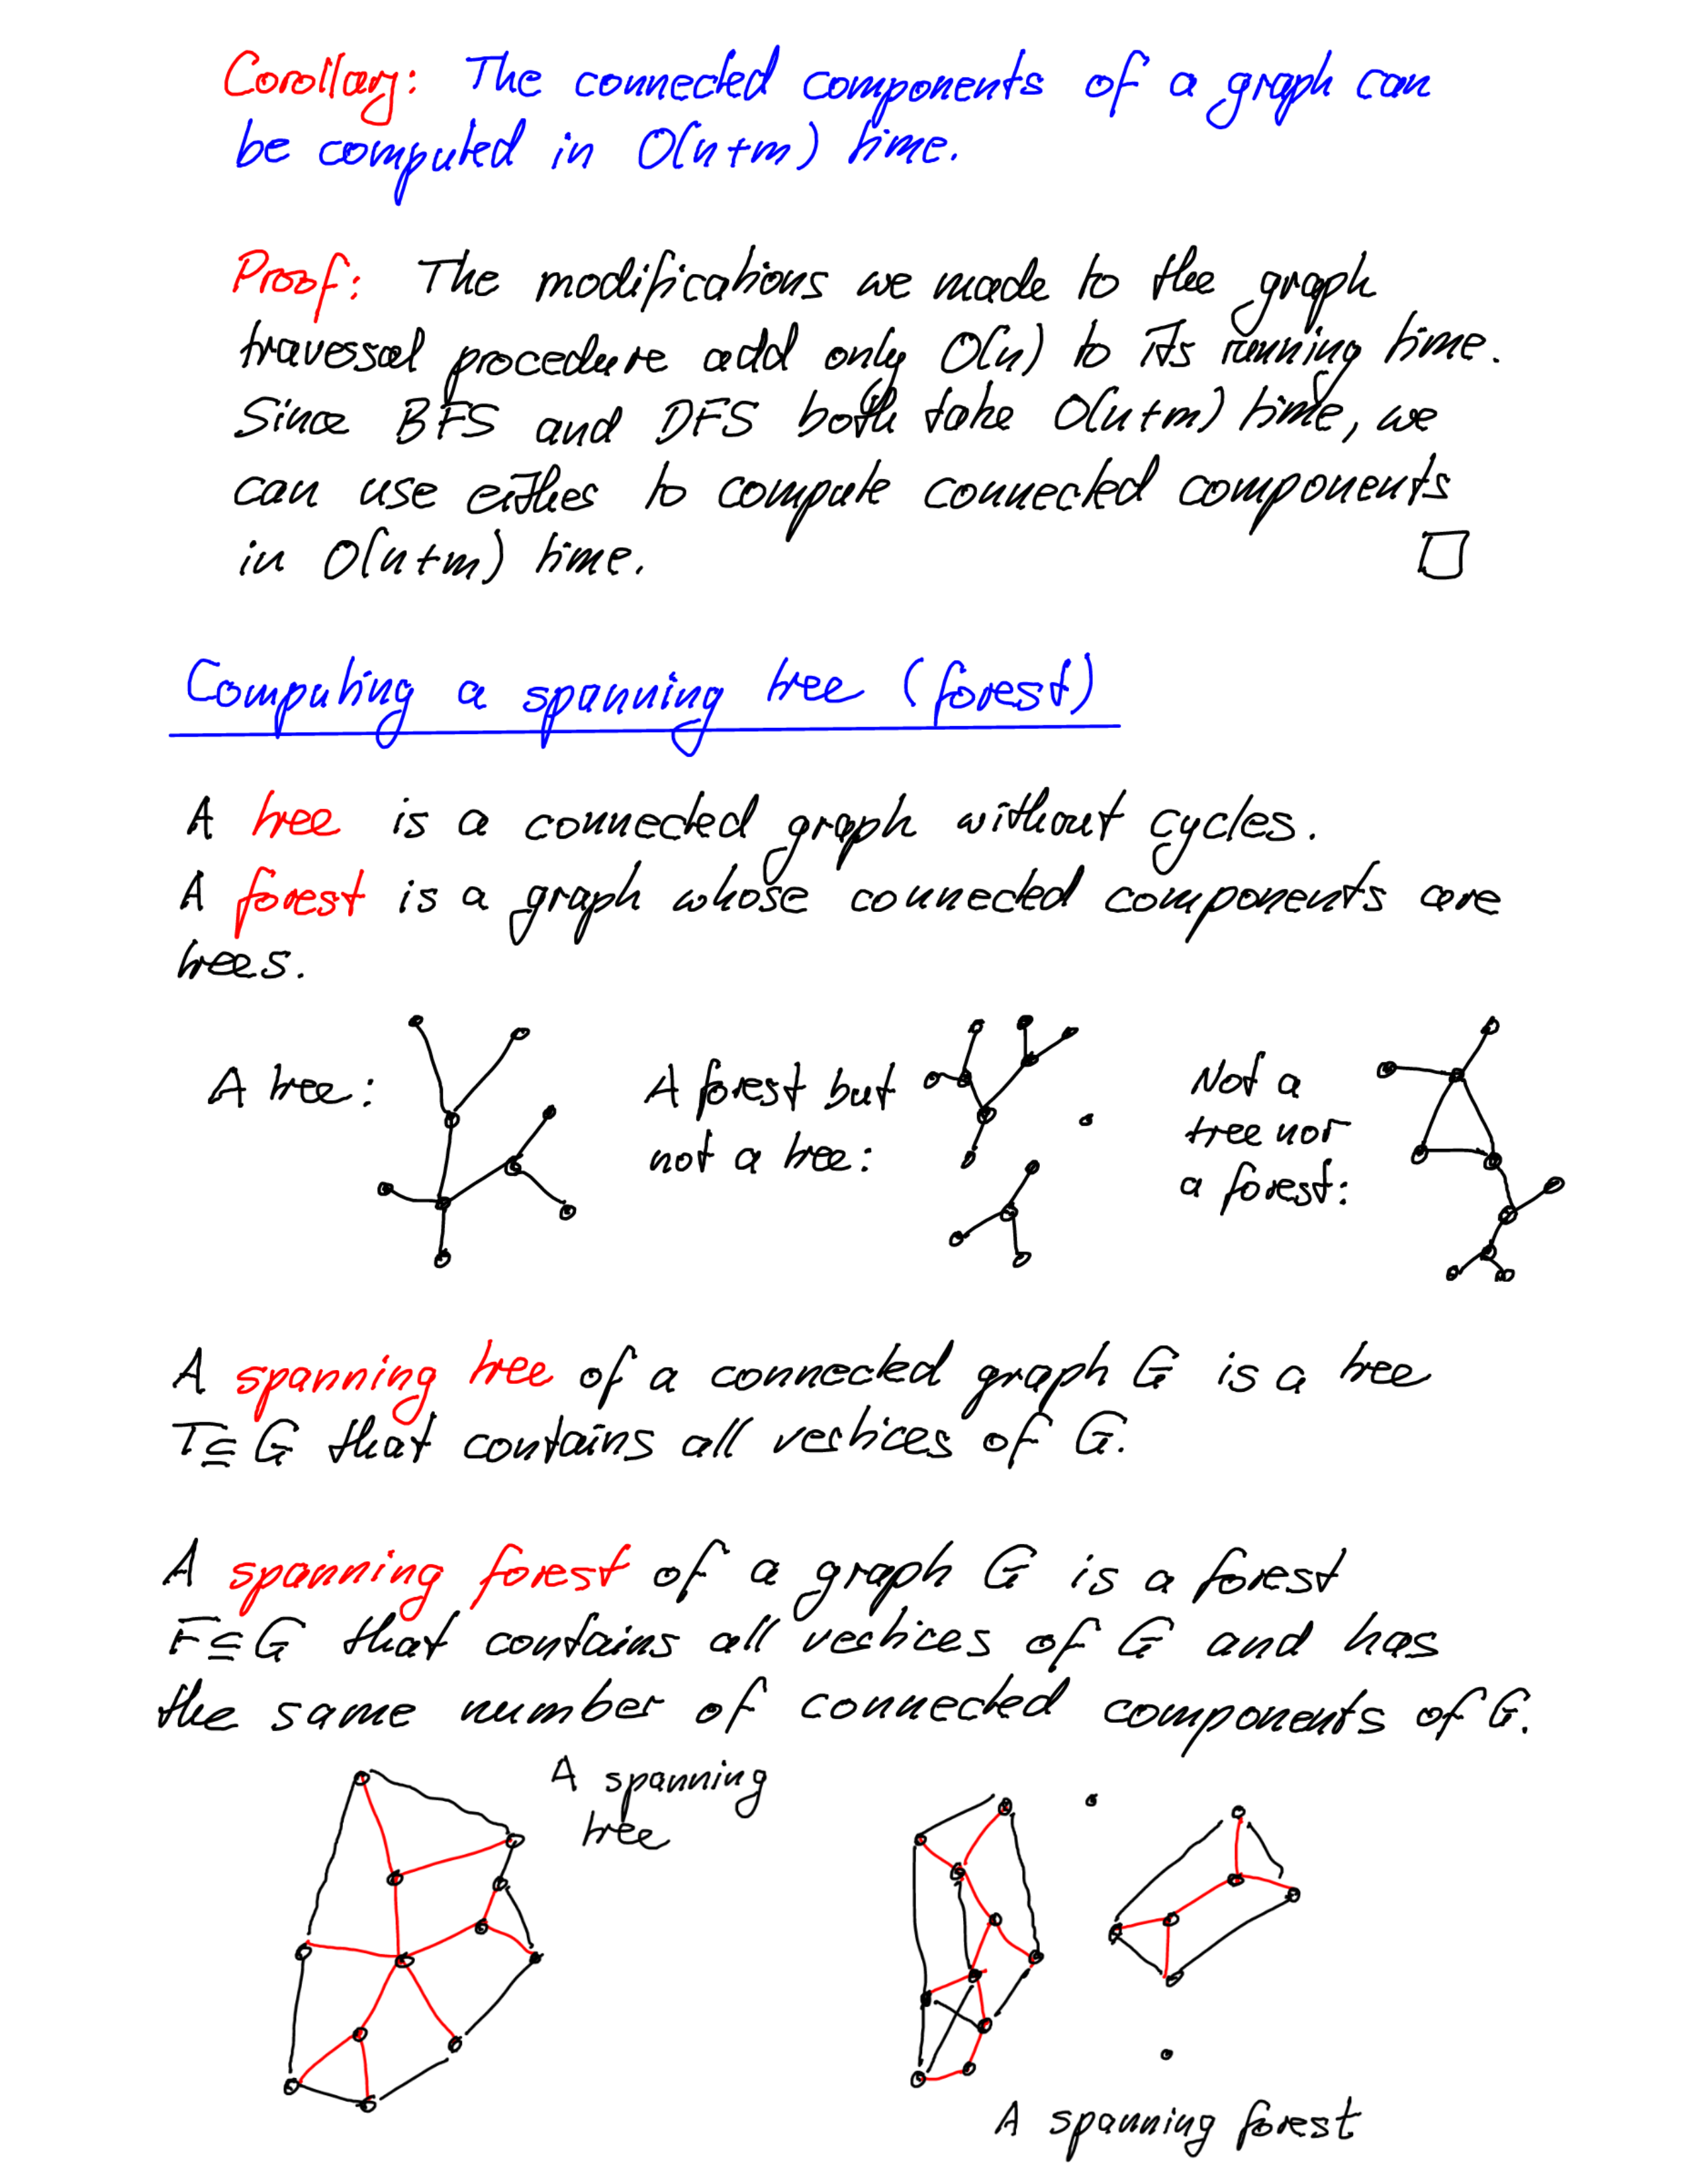 Corollary: The connected components of a graph can
be computed in O(n+m) time.
Proof: The modifications we made to the graph
traversal procedure add only O(n) to its running time.
Since BFS and DFS both take O(n+m) time, we
can use either to compute connected components
in O(n+m) time. □
Computing a spanning tree (forest)
A tree is a connected graph without cycles.
A forest is a graph whose connected components are
trees.
A tree:
A forest but
not a tree:
Not a
tree nor
a forest:
A spanning tree of a connected graph G is a tree
T⊆G that contains all vertices of G.
A spanning forest of a graph G is a forest
F⊆G that contains all vertices of G and has
the same number of connected components of G.
A spanning
tree
A spanning forest